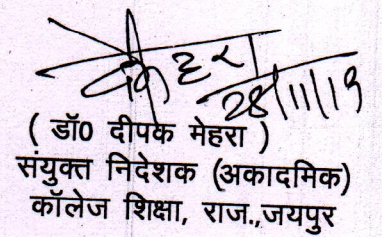 मेहरा
28/11/19
( डॉ0 दीपक मेहरा )
संयुक्त निदेशक (अकादमिक)
कॉलेज शिक्षा, राज.,जयपुर